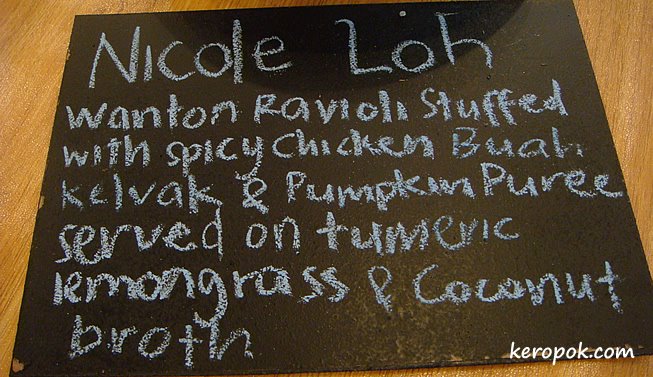 Nicole Loh
Wanton Ravioli Stuffed
with spicy Chicken Buah
Kelvak & Pumpkin Puree
served on tumeric
lemongrass & Coconut
broth
keropok.com